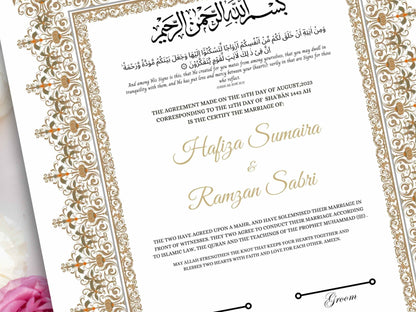 بسم الله الرحمن الرحيم
وَمِنْ آيَاتِهِ أَنْ خَلَقَ لَكُم مِّنْ أَنفُسِكُمْ أَزْوَاجًا لِّتَسْكُنُوا إِلَيْهَا وَجَعَلَ بَيْنَكُم مَّوَدَّةً وَرَحْمَةً
إِنَّ فِي ذَٰلِكَ لَآيَاتٍ لِّقَوْمٍ يَتَفَكَّرُونَ
And among His Signs is this, that He created for you mates from among yourselves, that you may dwell in
tranquility with them, and He has put love and mercy between your (hearts): verily in that are Signs for those
who reflect.
THE AGREEMENT MADE ON THE 15TH DAY OF AUGUST,2023
CORRESPONDING TO THE 12TH DAY OF SHA'BĀN 1443 AH
IS THE CERTIFY THE MARRIAGE OF:
Hafiza Sumaira
&
Ramzan Sabri
THE TWO HAVE AGREED UPON A MAHR, AND HAVE SOLEMNISED THEIR MARRIAGE IN
FRONT OF WITNESSES. THEY TWO AGREE TO CONDUCT THEIR MARRIAGE ACCORDING
TO ISLAMIC LAW, THE QURAN AND THE TEACHINGS OF THE PROPHET MUHAMMAD
MAY ALLAH STRENGTHEN THE KNOT THAT KEEPS YOUR HEARTS TOGETHER AND
BLESSES TWO HEARTS WITH FAITH AND LOVE FOR EACH OTHER. AMEEN.
Groom